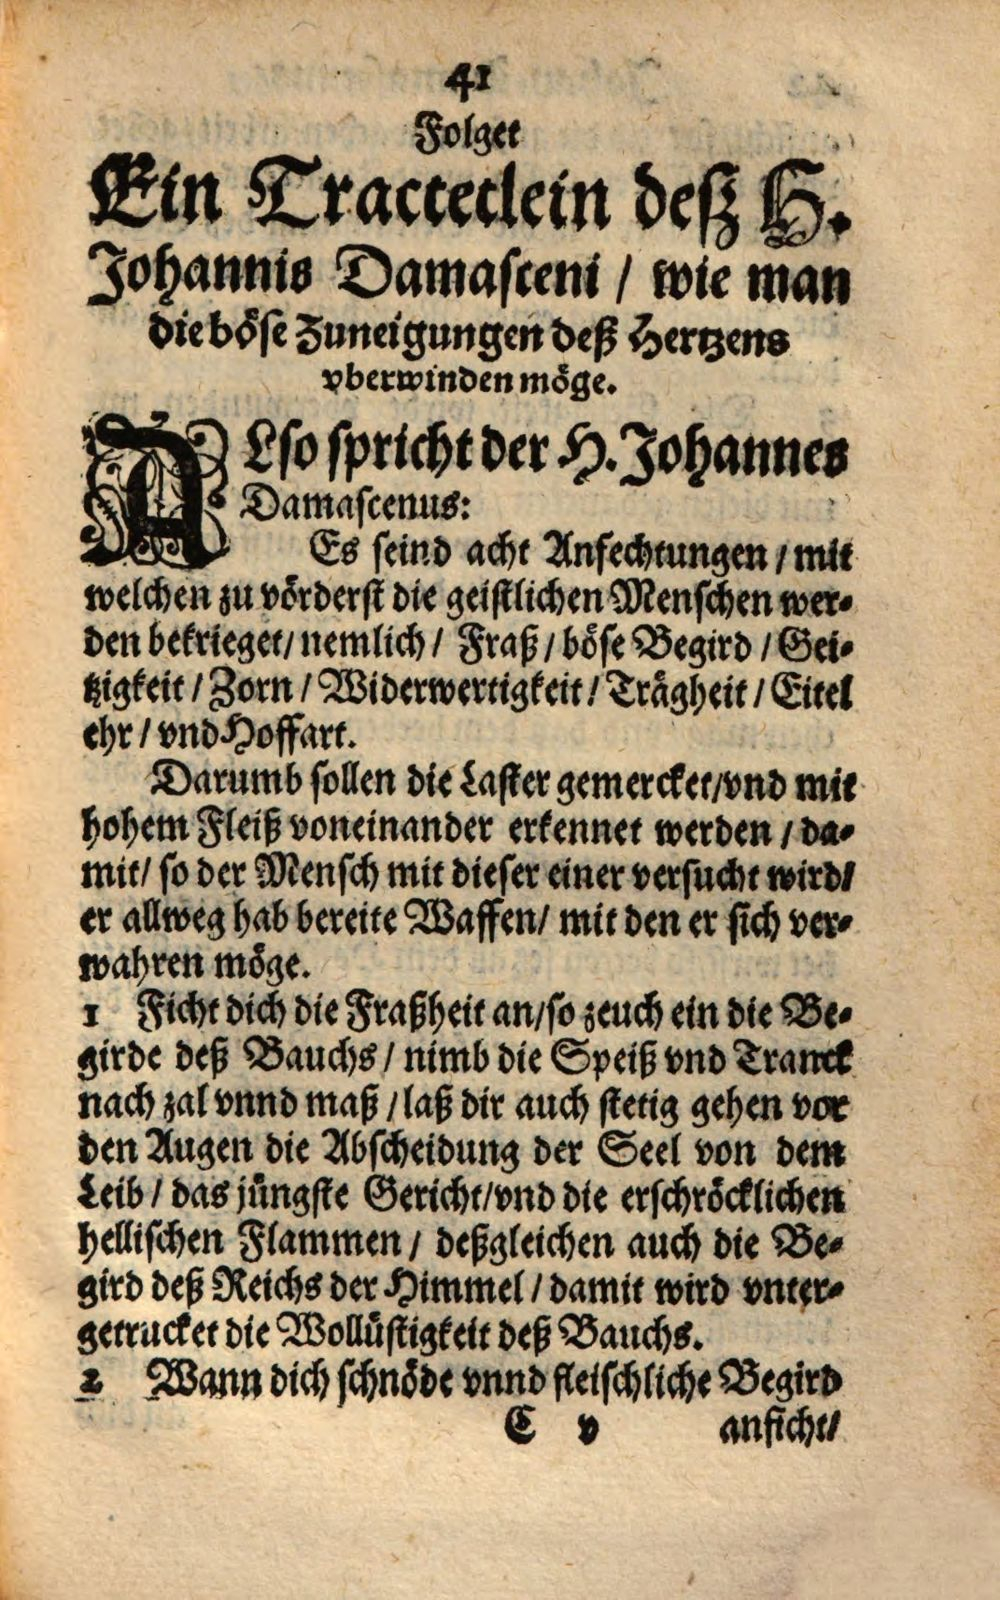 41
Folget
Ein Tractetlein deß H.
Johannis Damasceni / wie man
die böse Zuneigungen deß Hertzens
vberwinden möge.
ALso spricht der H. Johannes
Damascenus:
Es seind acht Anfechtungen / mit
welchen zu vörderst die geistlichen Menschen wer-
den bekrieget / nemlich / Fraß / böse Begird / Gei-
tzigkeit / Zorn / Widerwertigkeit / Trägheit / Eitel
ehr / vnd Hoffart.
Darumb sollen die Laster gemercket / vnd mit
hohem Fleiß voneinander erkennet werden / da-
mit / so der Mensch mit dieser einer versucht wird /
er allweg hab bereite Waffen / mit den er sich ver-
wahren möge.
1 Ficht dich die Fraßheit an / so zeuch ein die Be-
girde deß Bauchs / nimb die Speiß vnd Tranck
nach zal vnnd maß / laß dir auch stetig gehen vor
den Augen die Abscheidung der Seel von dem
Leib / das jüngste Gericht / vnd die erschröcklichen
hellischen Flammen / deßgleichen auch die Be-
gird deß Reichs der Himmel / damit wird vnter-
getrucket die Wollüstigkeit deß Bauchs.
2 Wann dich schnöde vnnd fleischliche Begird
C v anficht /